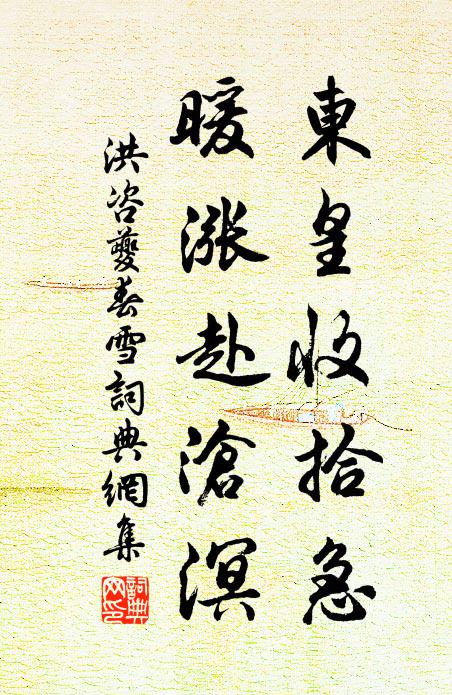 東皇收拾急
暖漲赴滄溟
洪咨夔春雪詞典網集
詞典網印